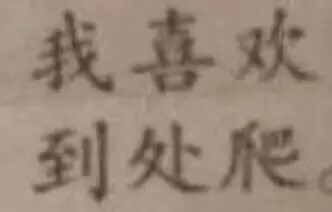 我喜欢
到处爬。